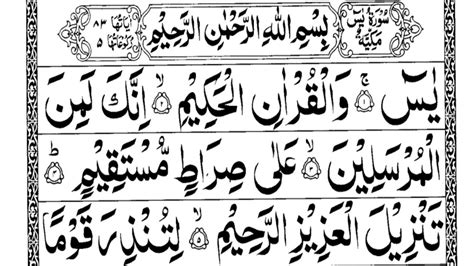 سُوْرَةُ يٰسٓ مَكِّيَّةٌ
بِسْمِ اللهِ الرَّحْمٰنِ الرَّحِيْمِ
يٰسٓ ۚ ﴿۱﴾ وَالْقُرْاٰنِ الْحَكِيْمِ ۙ ﴿۲﴾ اِنَّكَ لَمِنَ
الْمُرْسَلِيْنَ ۙ ﴿۳﴾ عَلٰى صِرَاطٍ مُّسْتَقِيْمٍ ؕ ﴿۴﴾
تَنْزِيْلَ الْعَزِيْزِ الرَّحِيْمِ ۙ ﴿۵﴾ لِتُنْذِرَ قَوْمًا